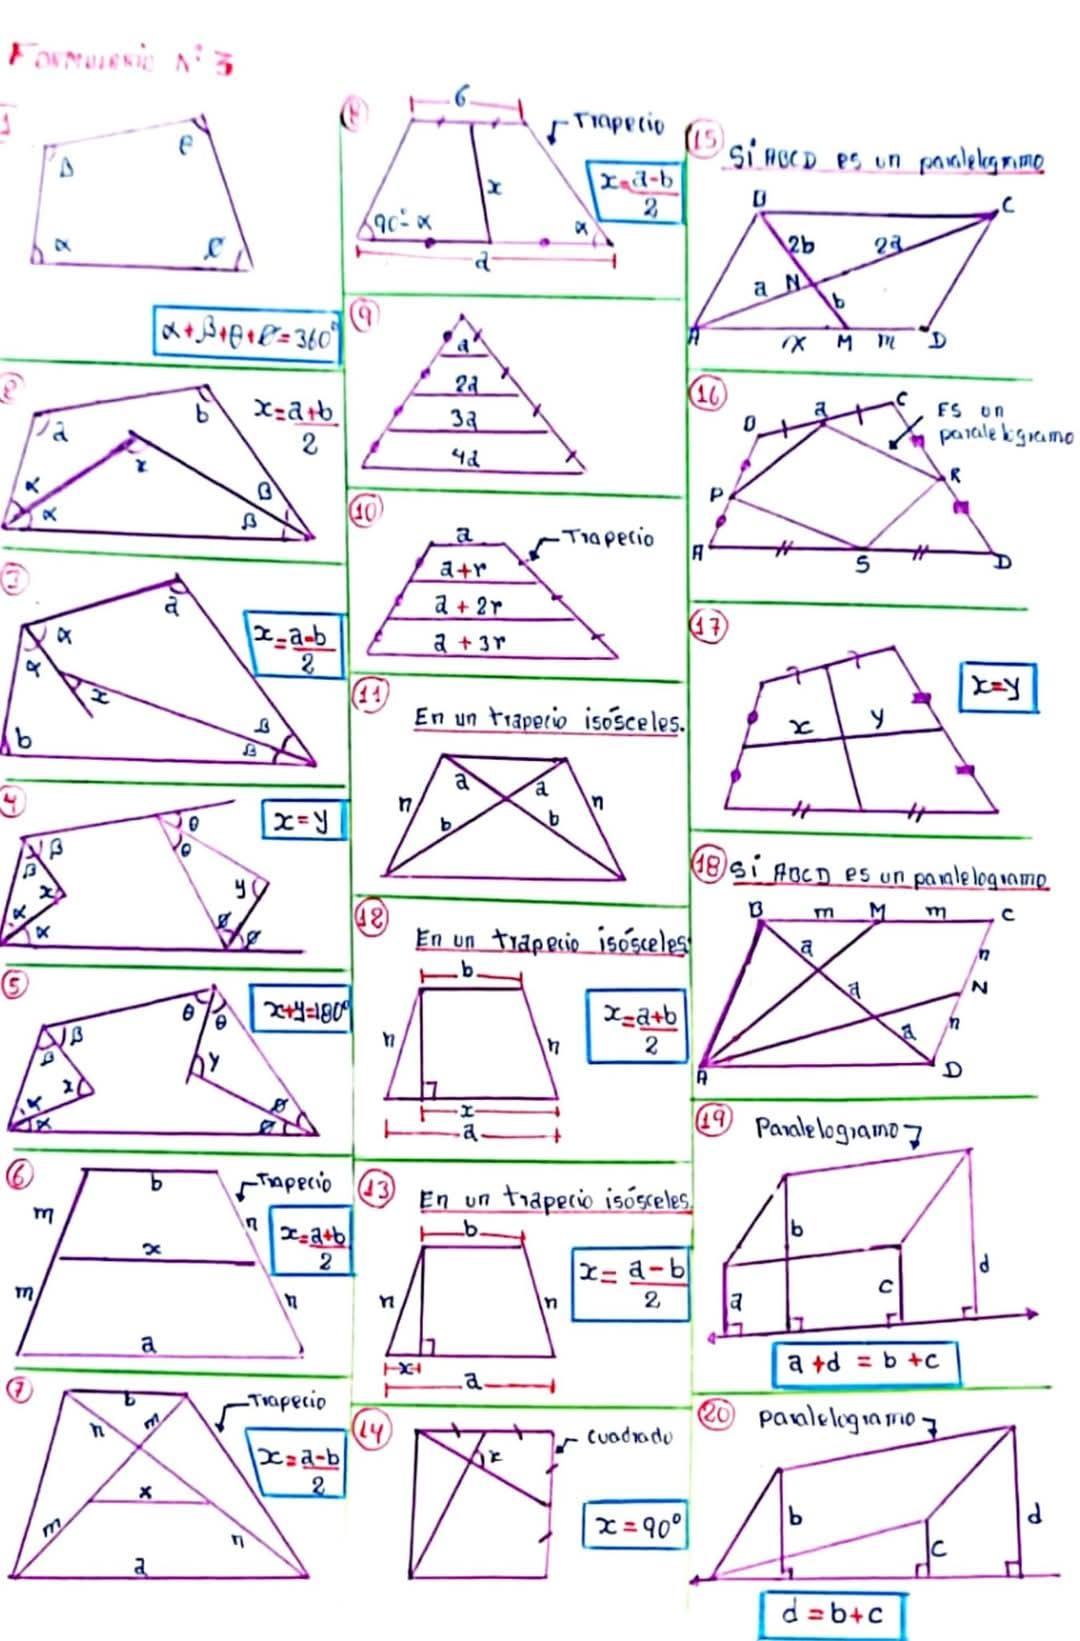 FORMULARIO N° 3
1
β
θ
α
α+β+θ+ø=360°
2
a
b
x
α
α
β
β
x=a+b
2
3
α
a
α
x
b
β
β
x=a-b
2
4
β
β
x
α
α
θ
θ
y
ø
ø
x=y
5
β
β
x
α
α
θ
θ
y
ø
ø
x+y=180°
6
b
Trapecio
m
n
x
m
n
a
x=a+b
2
7
b
Trapecio
n
m
x
m
n
a
x=a-b
2
8
Trapecio
x
90°-α
α
a
x=a-b
2
9
a
2a
3a
4a
10
a
Trapecio
a+r
a + 2r
a + 3r
11
En un trapecio isósceles.
a
a
n
n
b
b
12
En un trapecio isósceles
b
n
n
x
a
x=a+b
2
13
En un trapecio isósceles.
b
n
n
x
a
x= a-b
2
14
cuadrado
x
x=90°
15
Si ABCD es un paralelogramo
B
C
2b
2a
a
N
b
A
x
M
m
D
16
B
a
C
ES un
paralelogramo
P
R
A
S
D
17
x
y
x=y
18
Si ABCD es un paralelogramo
B
m
M
m
C
a
n
a
N
a
n
A
D
19
Paralelogramo
b
d
a
c
a+d = b+c
20
Paralelogramo
b
d
c
d=b+c